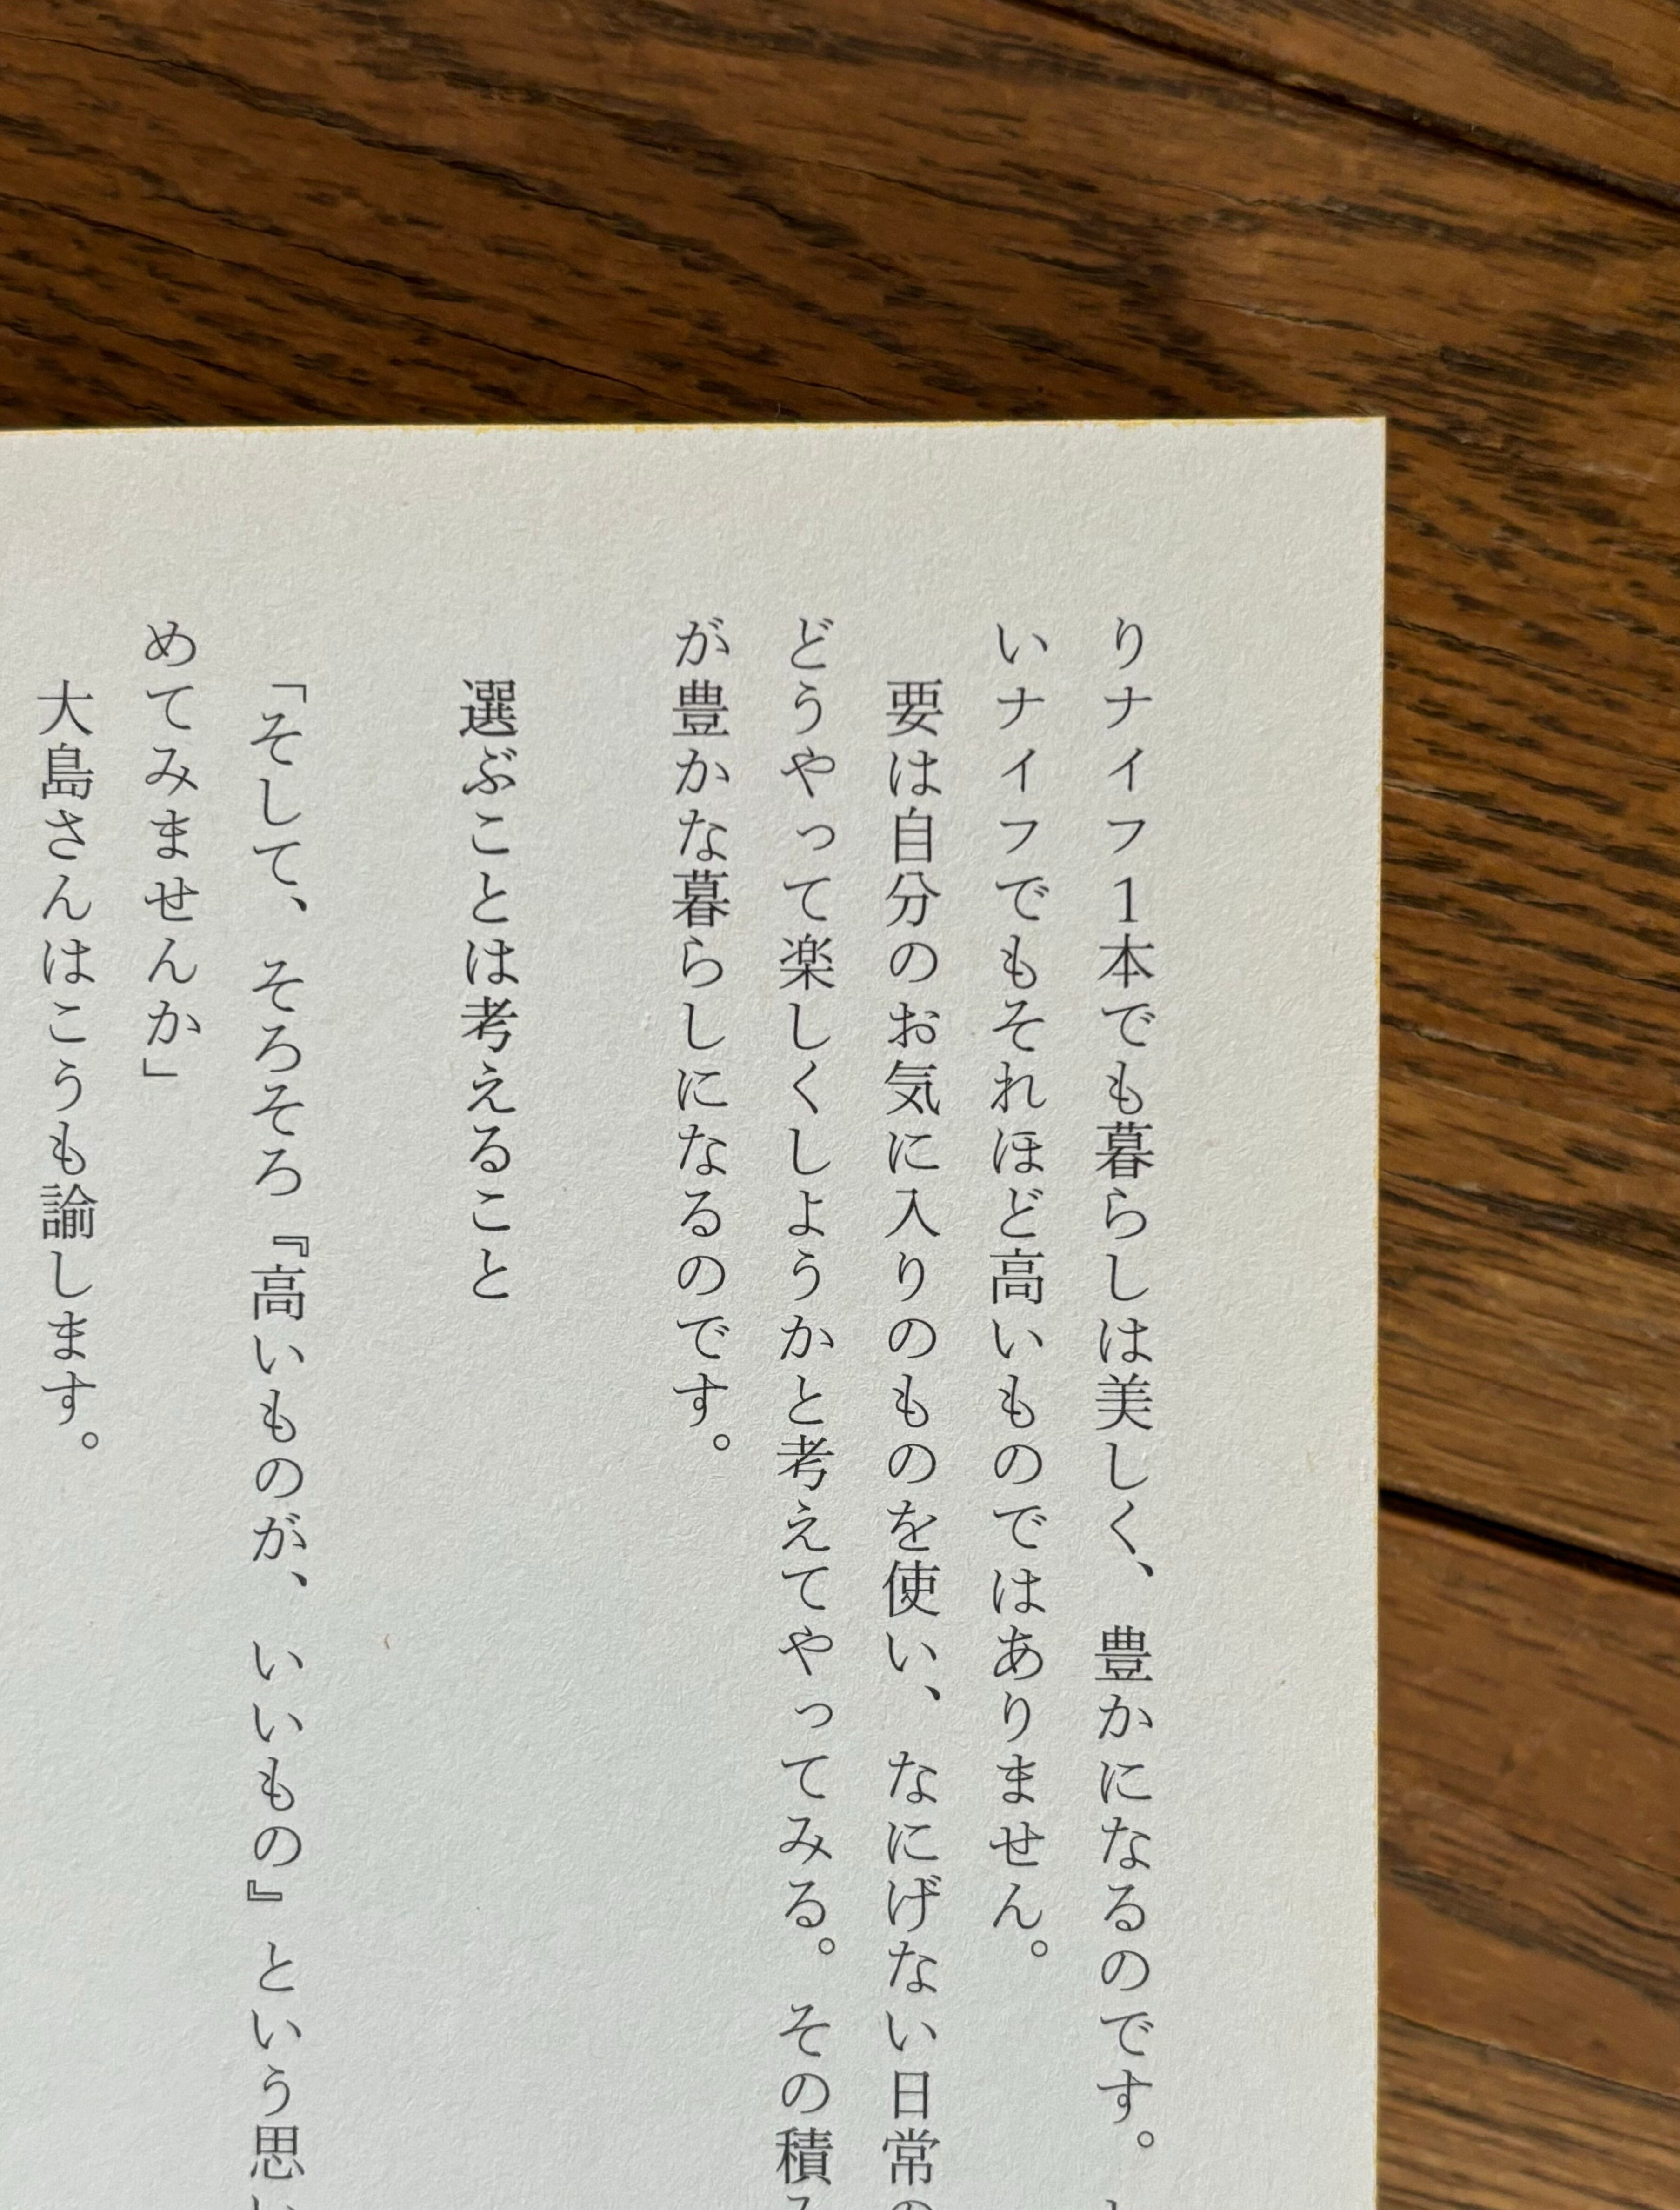 りナイフ1本でも暮らしは美しく、豊かになるのです。
いナイフでもそれほど高いものではありません。
要は自分のお気に入りのものを使い、なにげない日常の
どうやって楽しくしようかと考えてやってみる。その積み
が豊かな暮らしになるのです。
選ぶことは考えること
「そして、そろそろ『高いものが、いいもの』という思い
めてみませんか」
大島さんはこうも諭します。